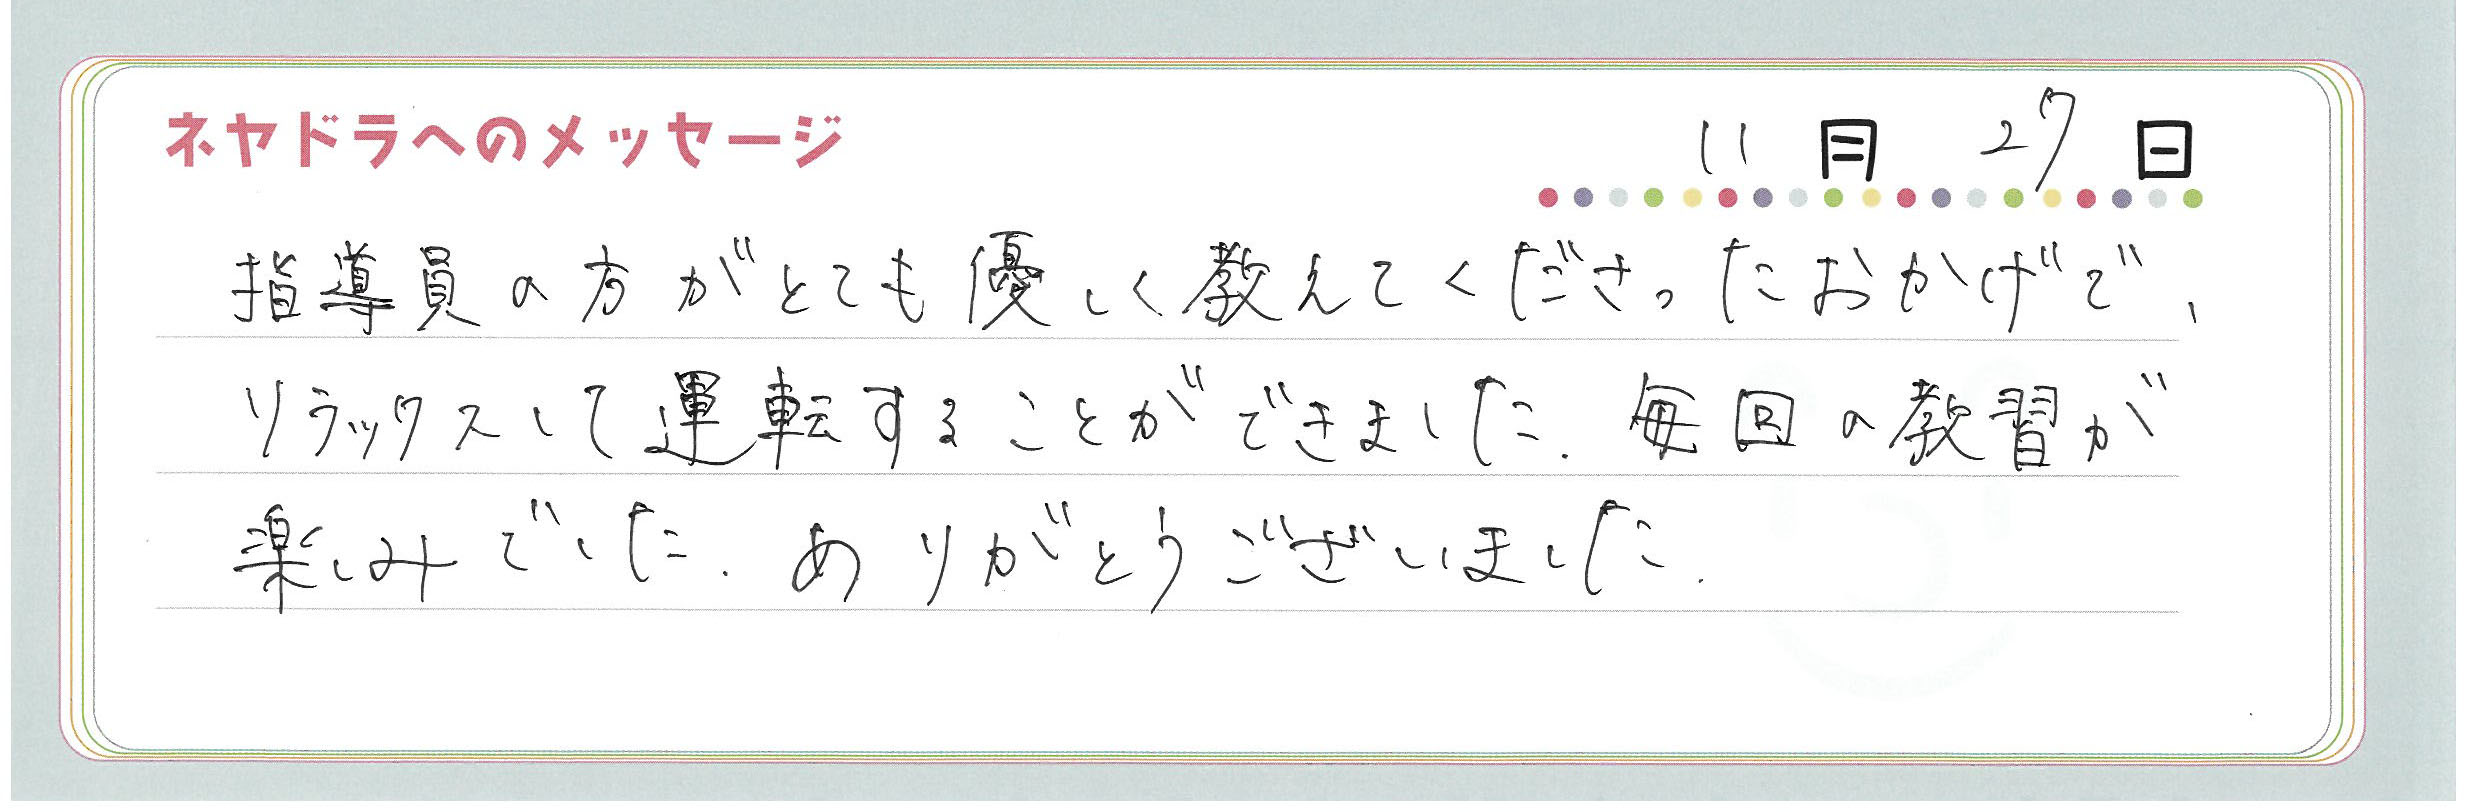 ネヤドラへのメッセージ 11月 27日
指導員の方がとても優しく教えてくださったおかげで、
リラックスして運転することができました。毎回の教習が
楽しみでした。ありがとうございました。